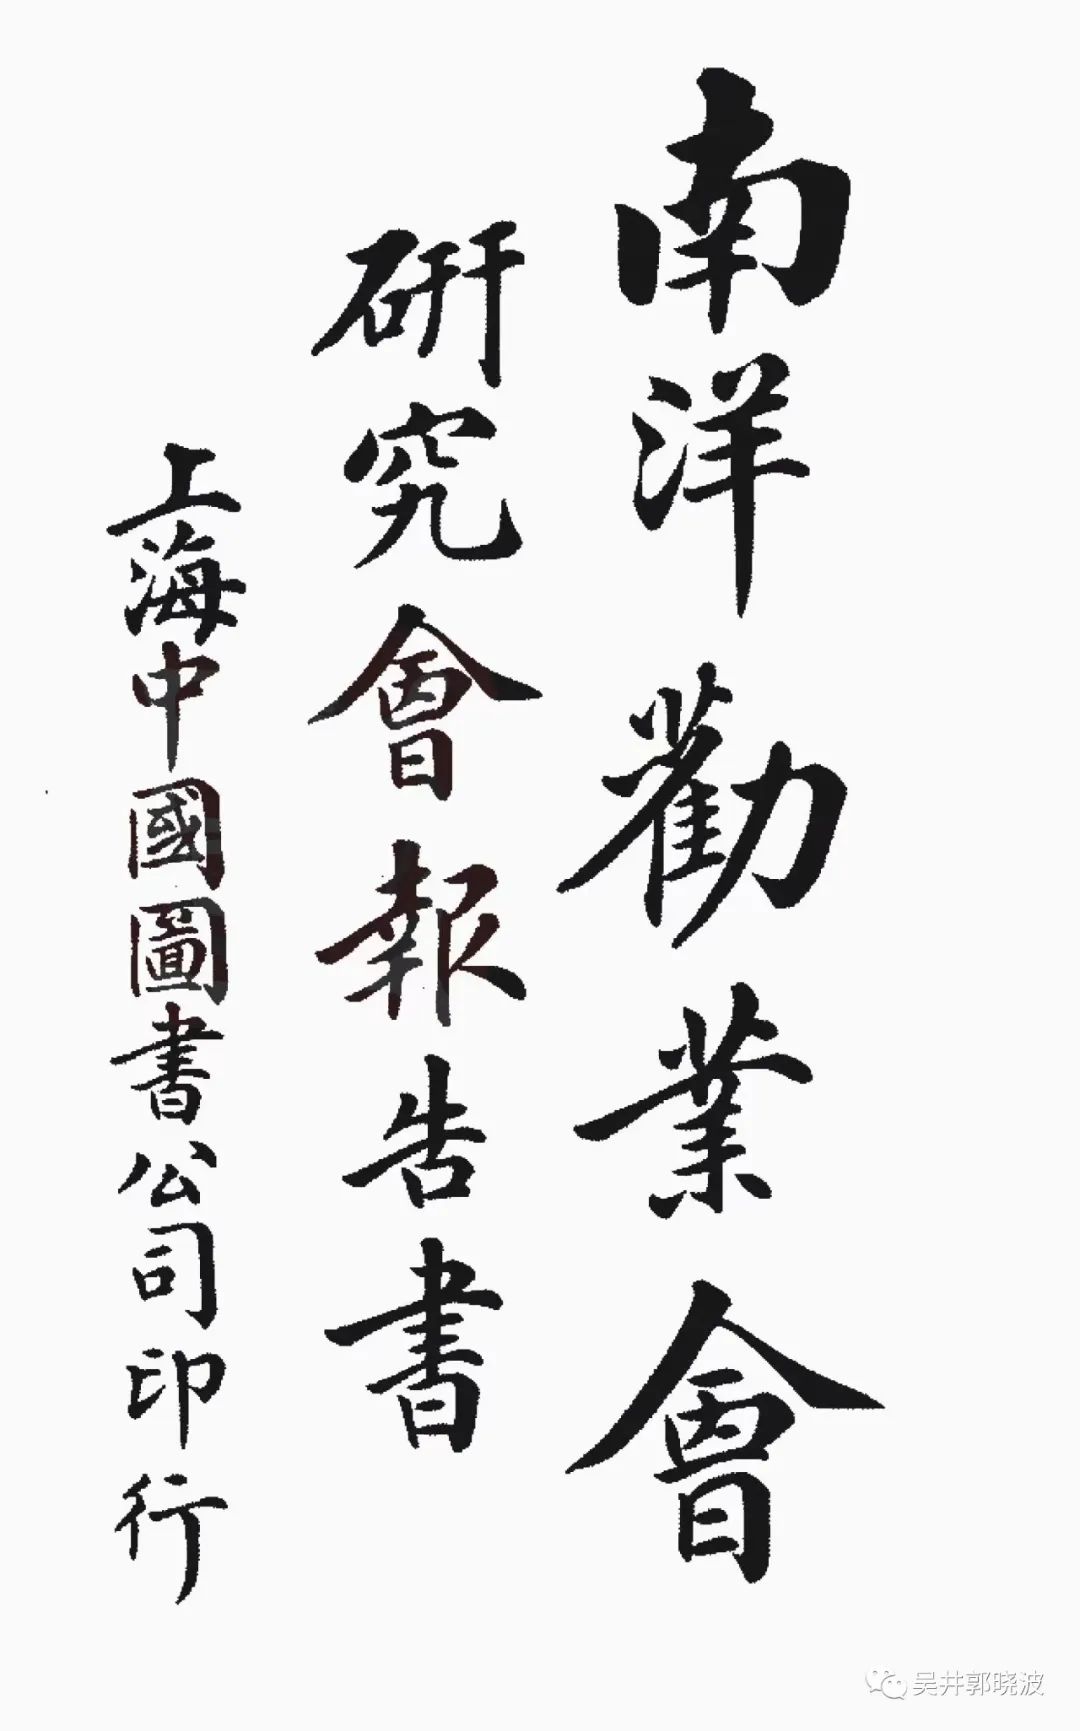 南洋勸業會
研究會報告書
上海中國圖書公司印行
吴井郭晓波